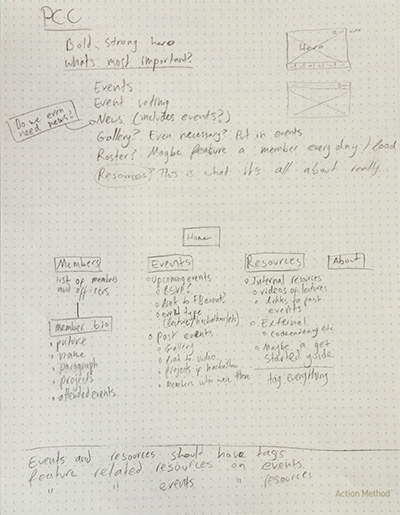 PCC
Bold, strong hero
What's most important?
Hero
Events
Event voting
Do we even
need news?
News (includes events?)
Gallery? Even necessary? Put in events
Roster? Maybe feature a member every day / load
Resources? This is what it's all about really
Home
Members
list of members
and officers
member bio
picture
name
paragraph
projects
attended events
Events
Upcoming events
RSVP?
link to FB event?
event type
(lecture/hackathon/etc)
Past events
Gallery
link to video
projects if hackathon
members who were there
Resources
Internal resources
videos of lectures
links to past
events
External
codecademy etc.
Maybe a get
started guide
tag everything
About
Events and resources should have tags
feature related resources on events
" " events " resources
Action Method